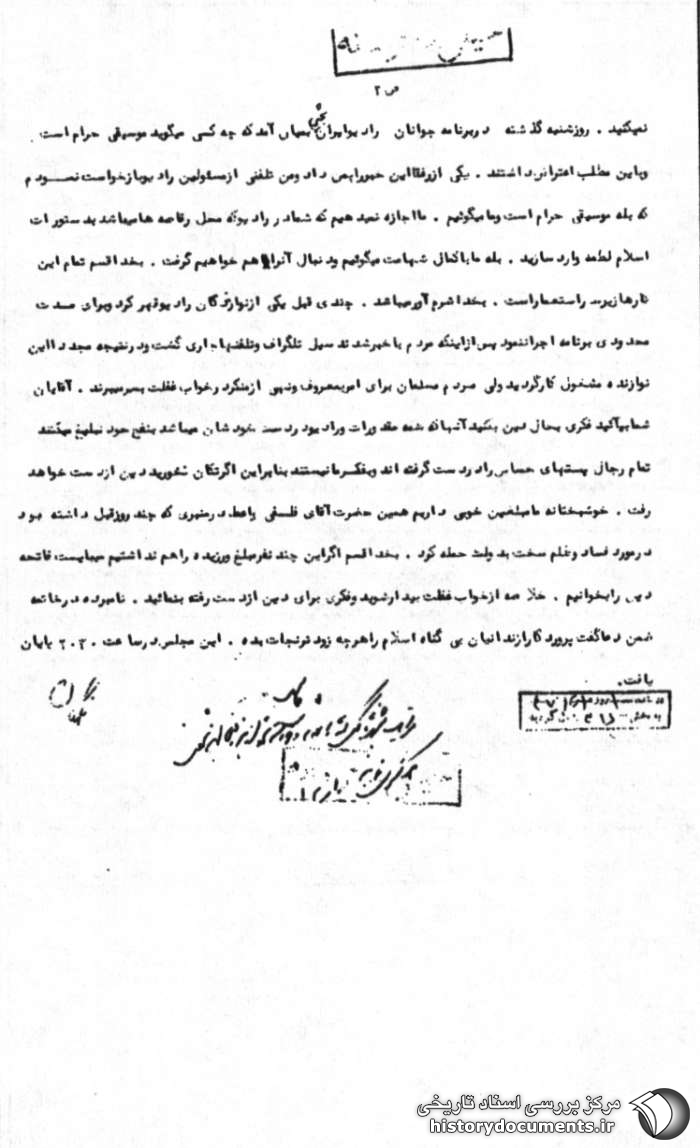 ص ۲
نمیکنید . روز شنبه گذشته در برنامه جوانان رادیو ایران بحثی بمیان آمد که چه کسی میگوید موسیقی حرام است
و باین مطلب اعتراض داشتند . یکی از رفقا این خبر را بمن داد و من تلفنی از مسئولین رادیو بازخواست نمودم
که بله موسیقی حرام است و ما میگوئیم . ما اجازه نمیدهیم که شما در رادیو که محل رقاصه ها میباشد بدستورات
اسلام لطمه وارد سازید . بله ما با کمال شهامت میگوئیم و دنبال آنرا هم خواهیم گرفت . بخدا قسم تمام این
کارها زیر سر استعمار است . بخدا شرم آور میباشد . چندی قبل یکی از نوازندگان رادیو قهر کرد و برای مدت
محدودی برنامه اجرا ننمود پس از اینکه مردم با خبر شدند سیل تلگراف و تلفنها جاری گشت و در نتیجه مجددا این
نوازنده مشغول کار گردید ولی مردم مسلمان برای امر بمعروف و نهی از منکر در خواب غفلت بسر میبرند . آقایان
شما بیائید فکری بحال دین بکنید آنهائی که همه مقدورات و رادیو در دست خودشان میباشد بنفع خود تبلیغ میکنند
تمام رجال پستهای حساس را در دست گرفته اند و بفکر ما نیستند بنابراین اگر تکان نخورید دین از دست خواهد
رفت . خوشبختانه ما مبلغین خوبی داریم همین حضرت آقای فلسفی واعظ در منبری که چند روز قبل داشته بود
در مورد فساد و ظلم سخت بدولت حمله کرد . بخدا قسم اگر این چند نفر مبلغ ورزیده را هم نداشتیم میبایست فاتحه
دین را بخوانیم . خلاصه از خواب غفلت بیدار شوید و فکری برای دین از دست رفته بنمائید . نامبرده در خاتمه
ضمن دعا گفت پروردگارا زندانیان بی گناه اسلام را هر چه زودتر نجات بده . این مجلس در ساعت ۲۰۳۰ پایان
یافت .
مرکز بررسی اسناد تاریخی
historydocuments.ir